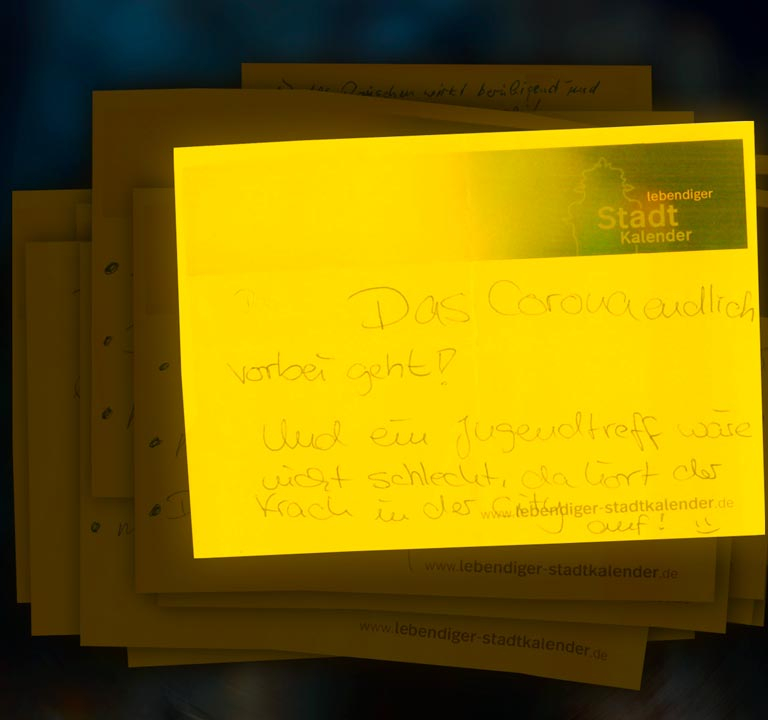 wirkt beruhigend und
lebendiger
Stadt
Kalender
Das Corona endlich
vorbei geht!
Und ein Jugendtreff wäre
nicht schlecht, da hört der
Krach in der City
www.lebendiger-stadtkalender.de
auf! :)
www.lebendiger-stadtkalender.de
www.lebendiger-stadtkalender.de